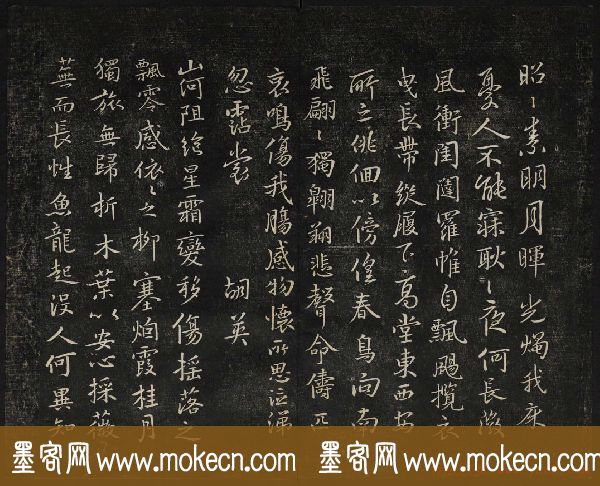 昭〻素明月暉光燭我床
憂人不能寐耿〻夜何長微
風衝閨闥羅帷自飄颺攬衣
曳長帶縱履下高堂東西安
所之俳佪以傍偟春鳥向南
飛翩〻獨翱翔悲聲命儔匹
哀鳴傷我腸感物懷所思泣涕
忽霑裳 胡英
山河阻絕星霜變移傷搖落之
飄零感依〻之柳塞烟霞桂月
獨旅無歸折木葉以安心採薇
蕪而長性魚龍起沒人何異知
墨客网 www.mokecn.com 墨客网 www.mokecn.com